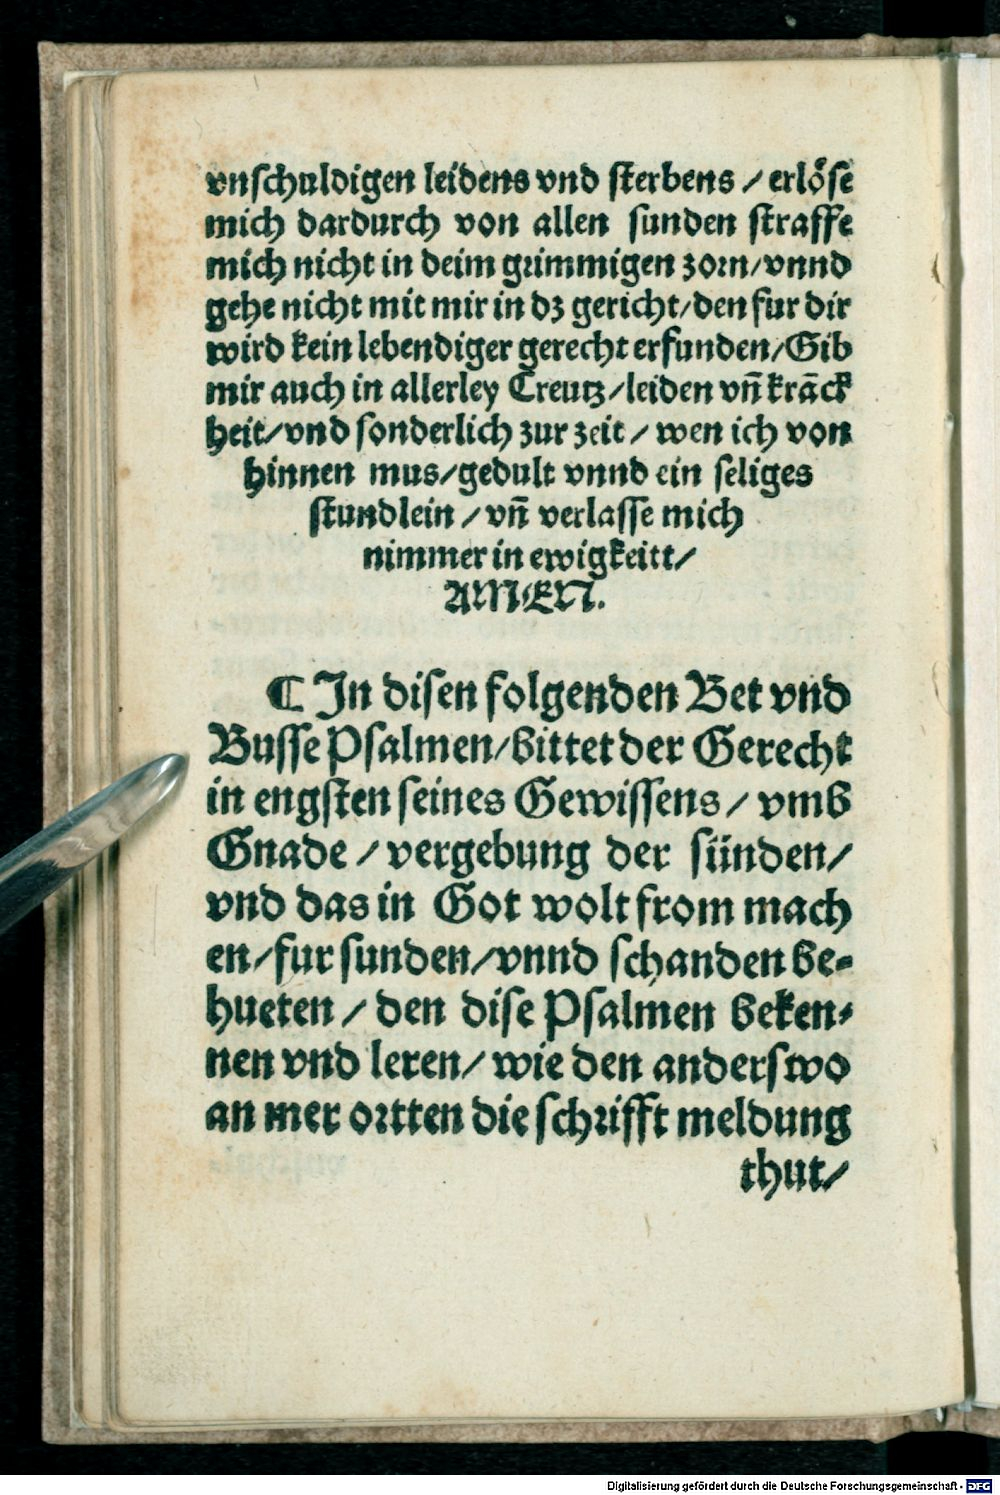 vnschuldigen leidens vnd sterbens / erlöse
mich dardurch von allen sunden straffe
mich nicht in deim grimmigen zorn/vnnd
gehe nicht mit mir in dz gericht/den fur dir
wird kein lebendiger gerecht erfunden/Gib
mir auch in allerley Creutz/leiden vn̄ krāck
heit/vnd sonderlich zur zeit / wen ich von
hinnen mus/gedult vnnd ein seliges
stundlein / vn̄ verlasse mich
nimmer in ewigkeitt/
AMEN.
¶ In disen folgenden Bet vnd
Busse Psalmen/bittet der Gerecht
in engsten seines Gewissens / vmb
Gnade / vergebung der sünden/
vnd das in Got wolt from mach
en/fur sunden/vnnd schanden be-
hueten / den dise Psalmen beken-
nen vnd leren/ wie den anderswo
an mer ortten die schrifft meldung
thut/
Digitalisierung gefördert durch die Deutsche Forschungsgemeinschaft - DFG